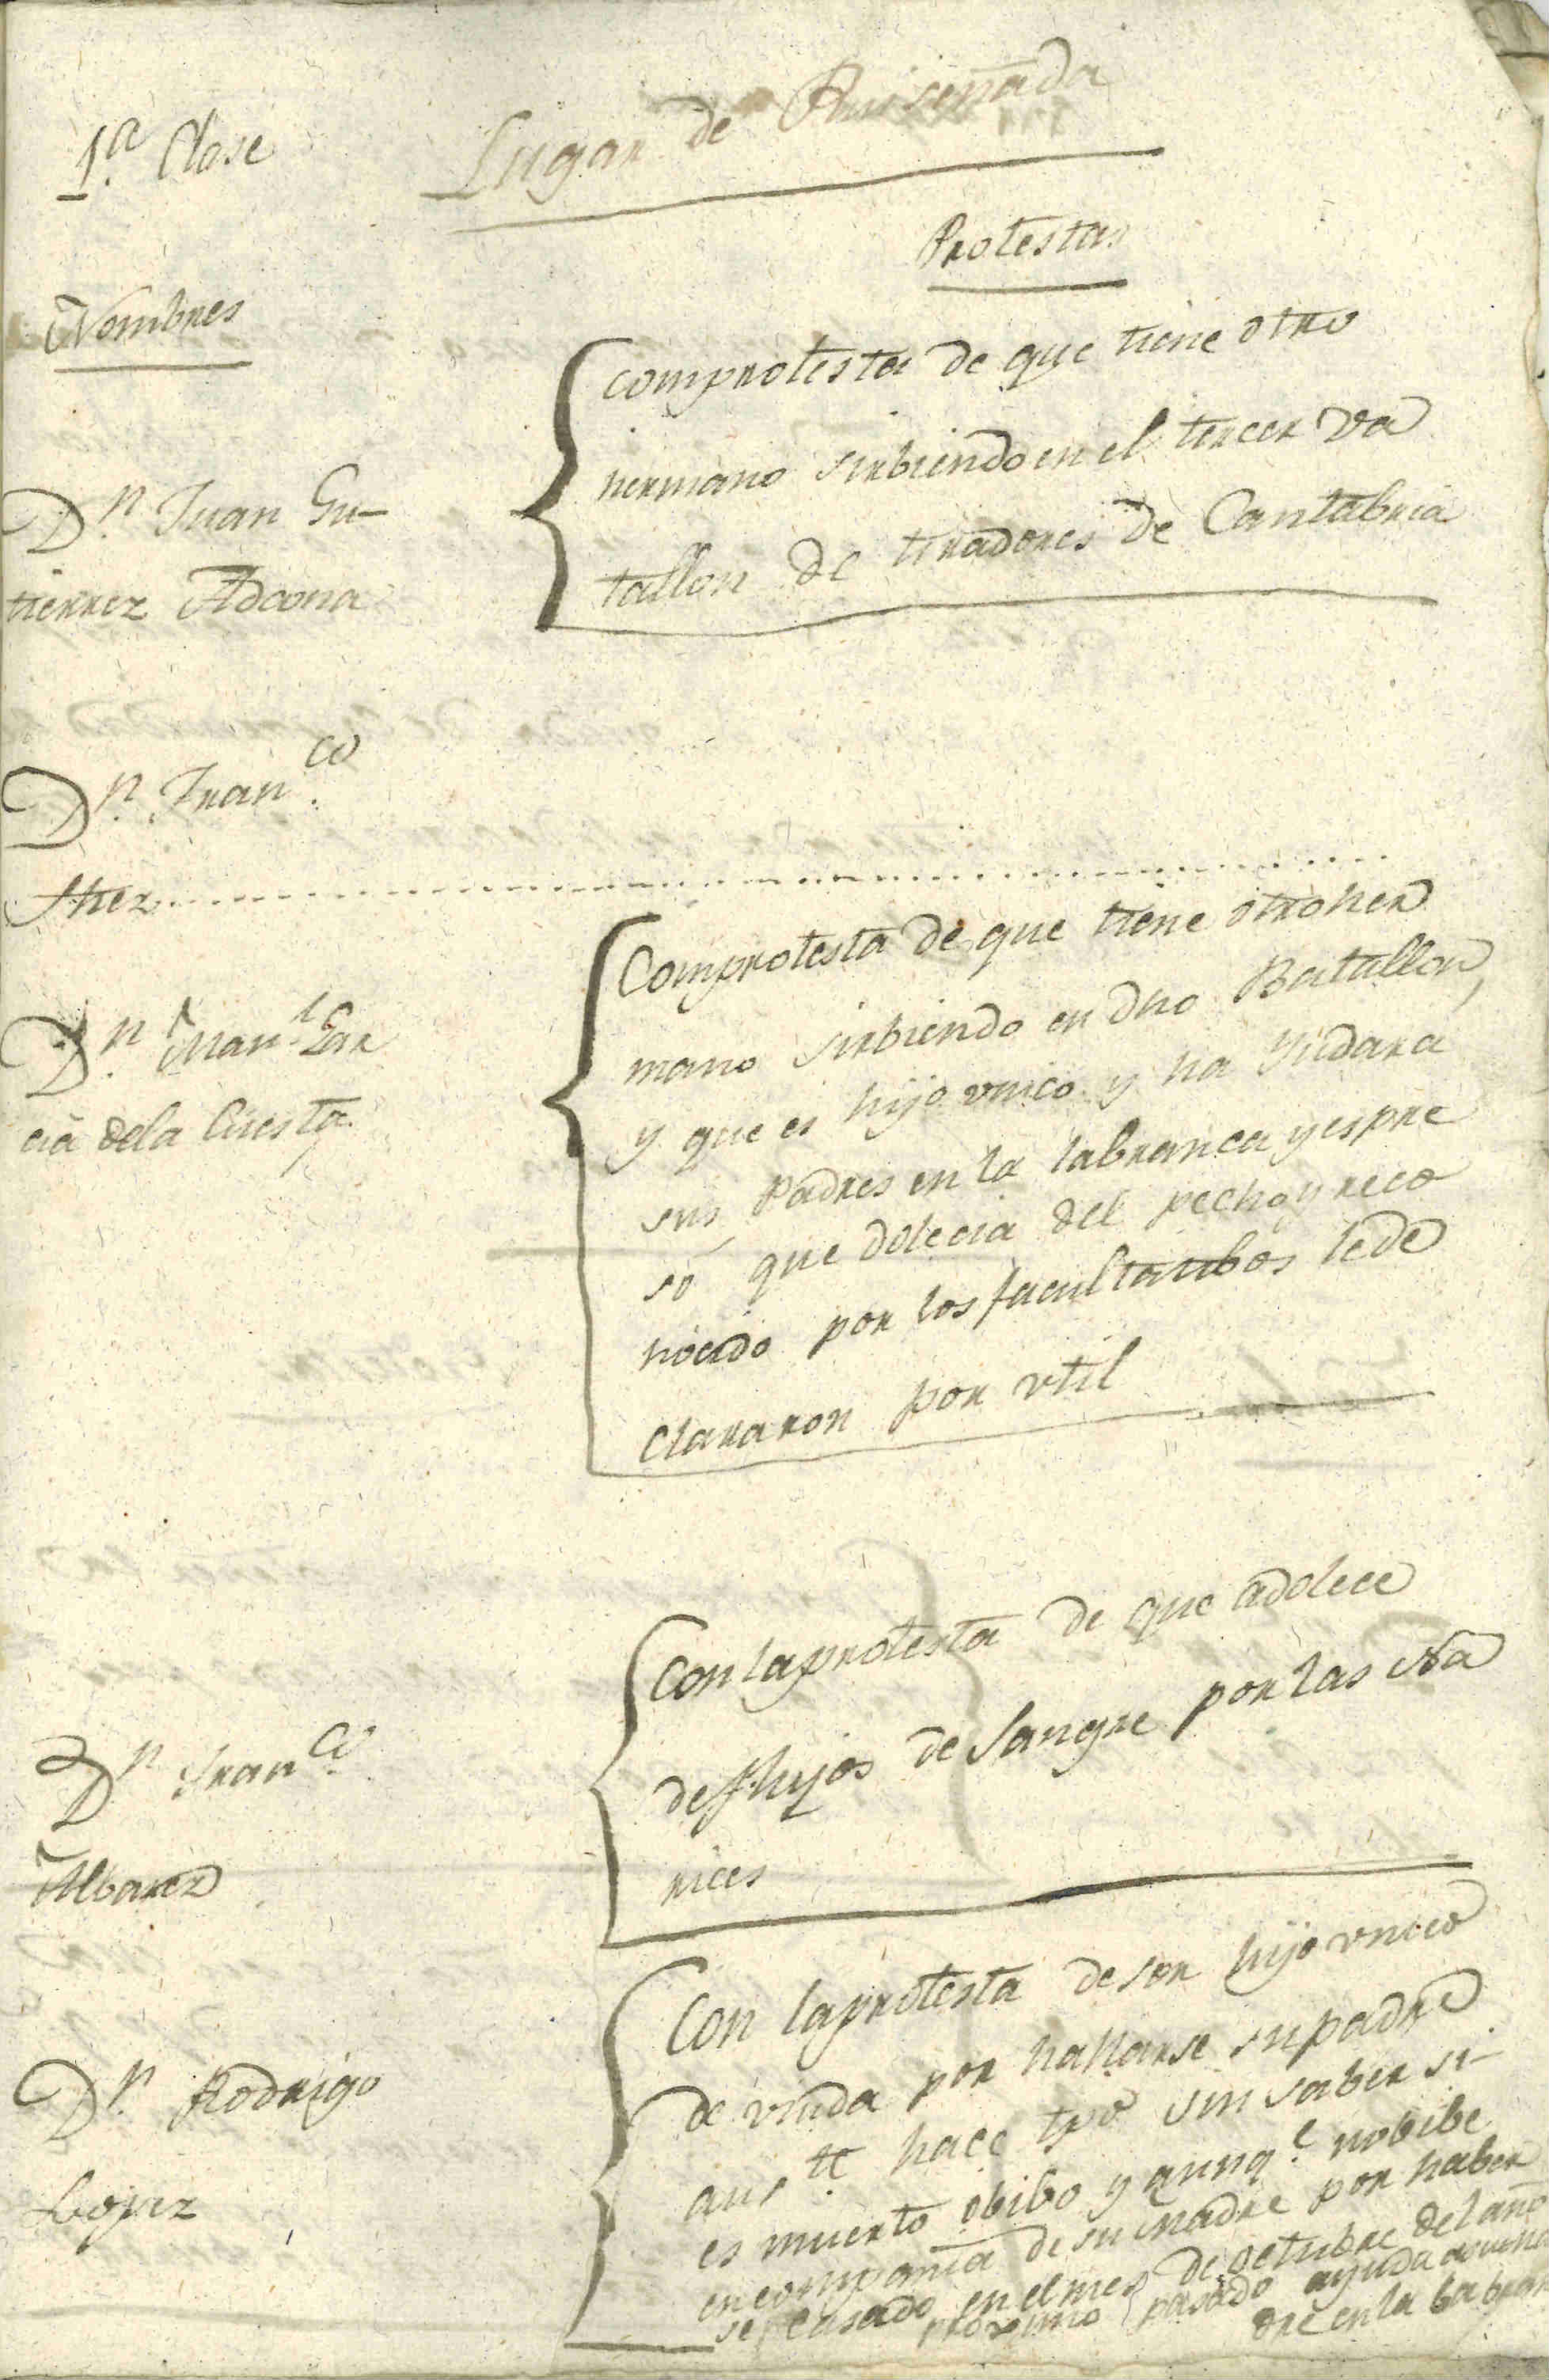 1.ª Clase
Lugar de Ruiseñada
Nombres
Protestas
Dn. Juan Gu-
tierrez Adcona
comprotesta de que tiene otro
hermano sirbiendo en el tercer Va
tallon de tiradores de Cantabria
Dn. Franco.
Comprotesta de que tiene otro her
mano sirbiendo en dho Batallon,
y que es hijo vnico y ha Yudara
sus Padres en la labranca y espre
só que dolecia del pecho y reco
nocido por los facultatibos le de
clararon por vtil
Dn. Manl. Gar
cia de la Cuesta
Dn. Franco.
Albarez
Con la protesta de que adolece
de flujos de Sangre por las Na
rices
Dn. Rodrigo
Lopez
Con la protesta de ser hijo vnico
de viuda por hallarse su padre
aus.te hace tpo sin saber si-
es muerto o bibo y aunq.e no bibe
en compañia de su Madre por haber
se casado en el mes de octubre del año
proximo pasado ayuda a su ma
dre en la labran